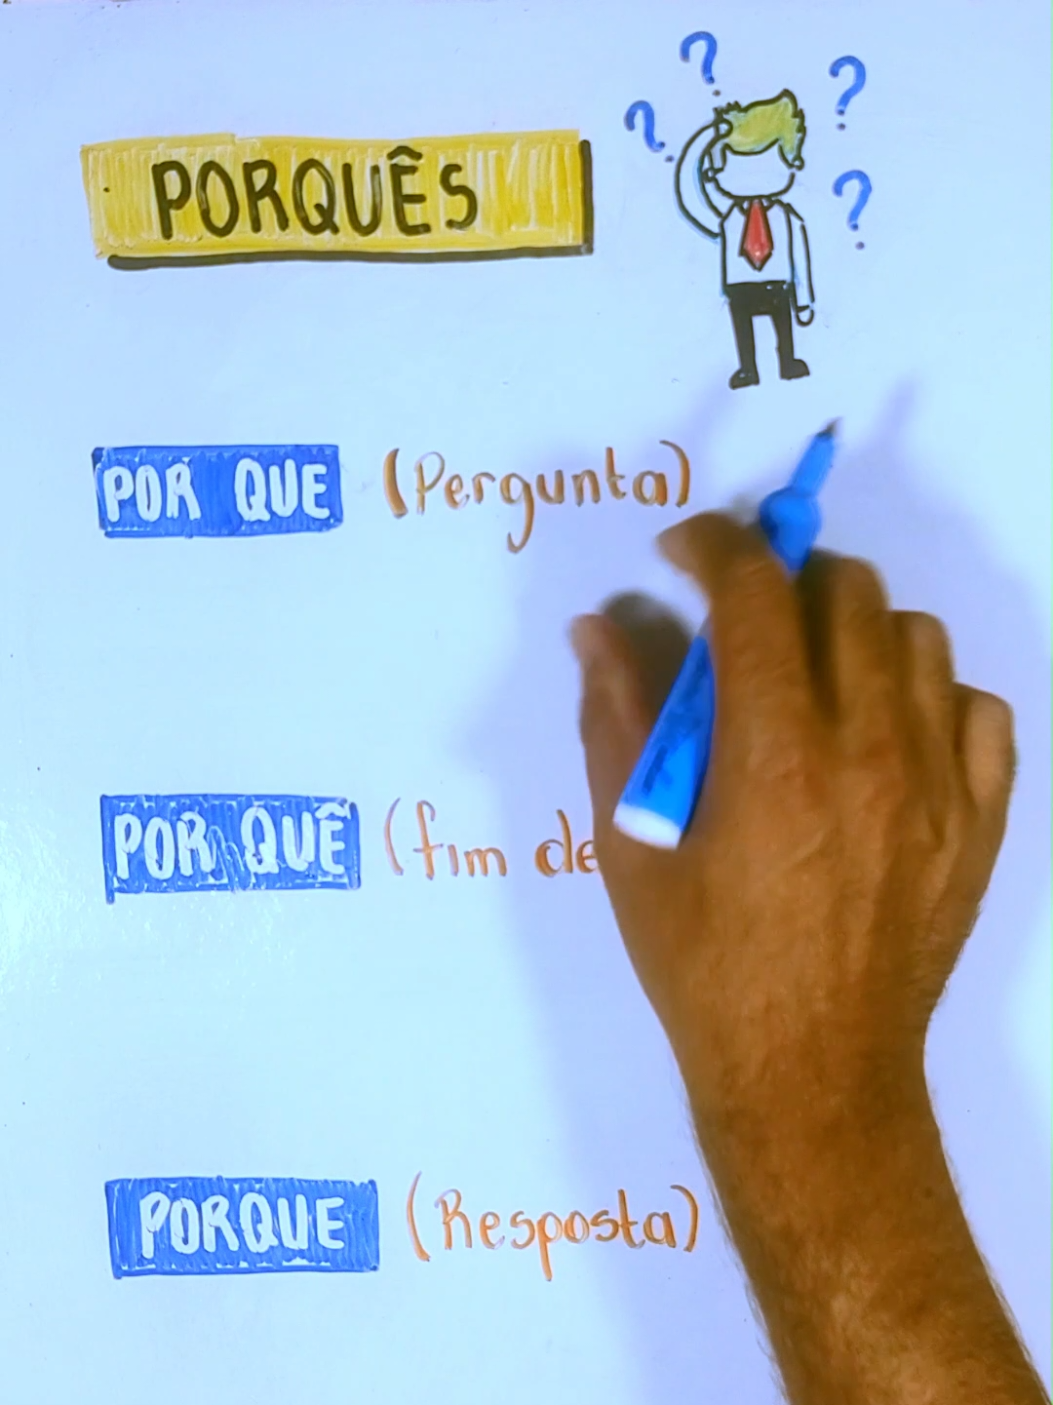 PORQUÊS
? ? ? ?
POR QUE (Pergunta)
POR QUÊ (fim de
PORQUE (Resposta)